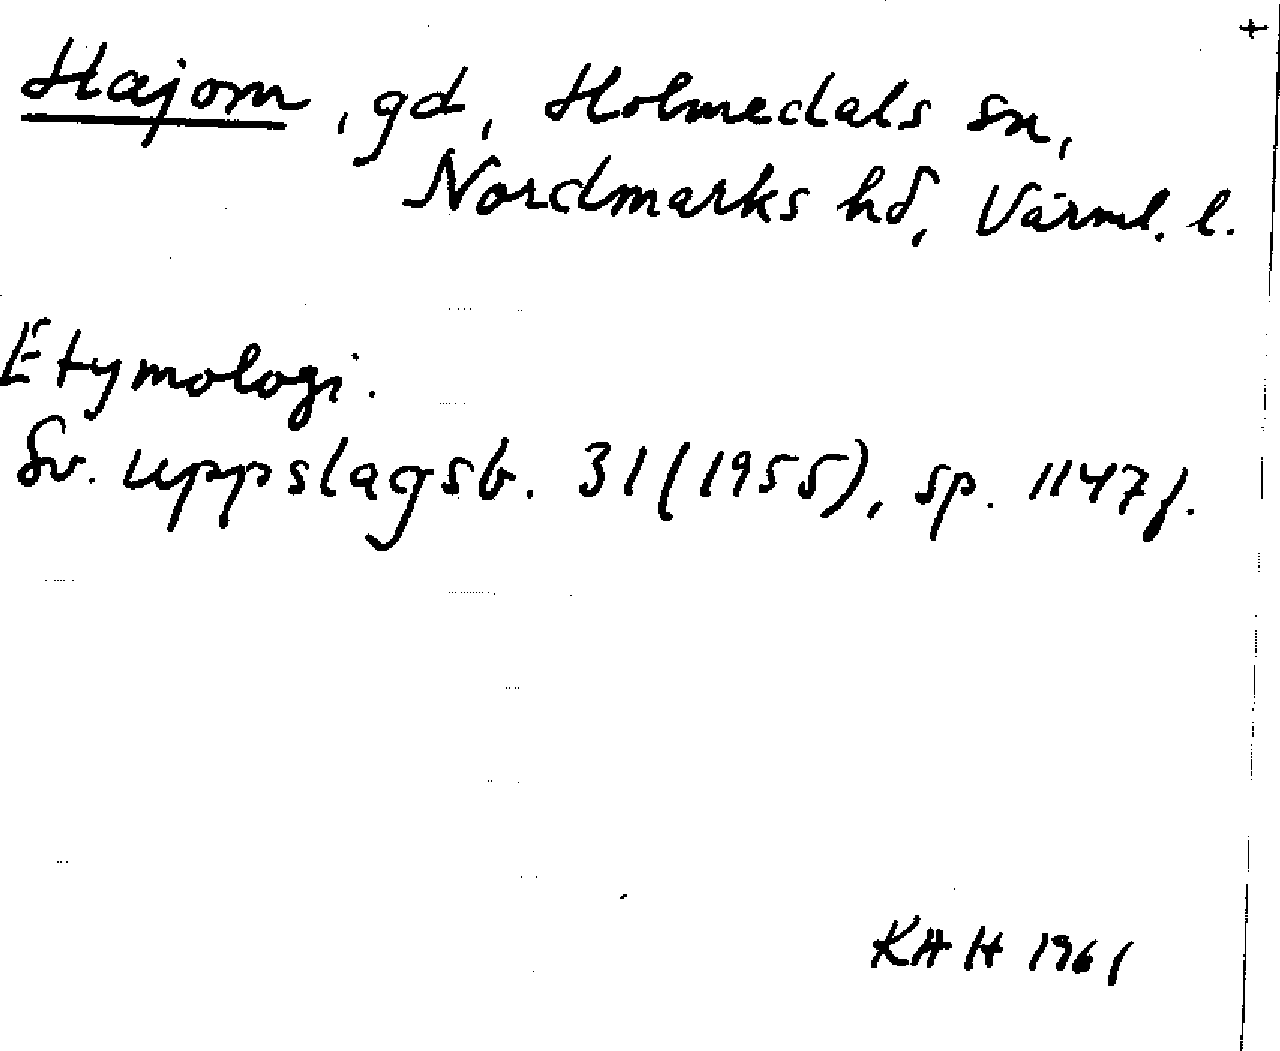 +
Hajom, gd, Holmedals sn,
Nordmarks hd, Värml. l.
Etymologi.
Sv. uppslagsb. 31 (1955), sp. 1147f.
KHH 1961